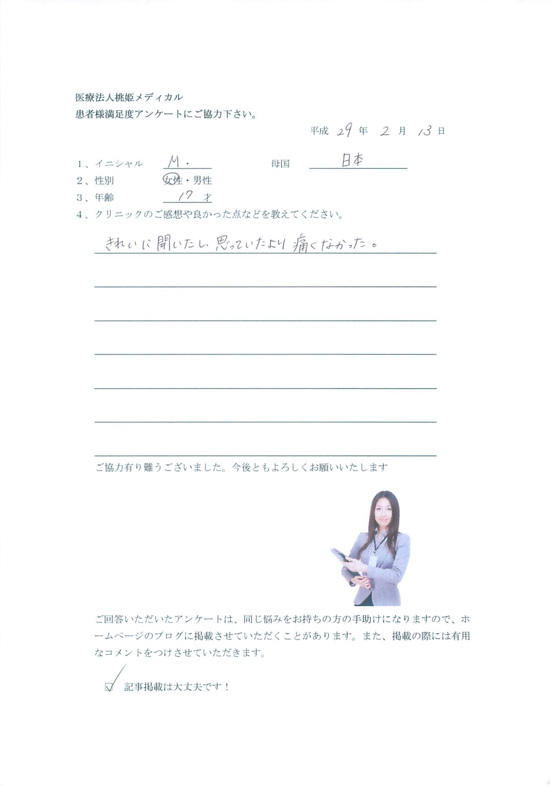 医療法人桃姫メディカル
患者様満足度アンケートにご協力下さい。
平成 29 年 2 月 13 日
1、イニシャル M. 母国 日本
2、性別 女性・男性
3、年齢 17 才
4、クリニックのご感想や良かった点などを教えてください。
きれいに開いたし、思っていたより痛くなかった。
ご協力有り難うございました。今後ともよろしくお願いいたします
ご回答いただいたアンケートは、同じ悩みをお持ちの方の手助けになりますので、ホ
ームページのブログに掲載させていただくことがあります。また、掲載の際には有用
なコメントをつけさせていただきます。
☑ 記事掲載は大丈夫です！